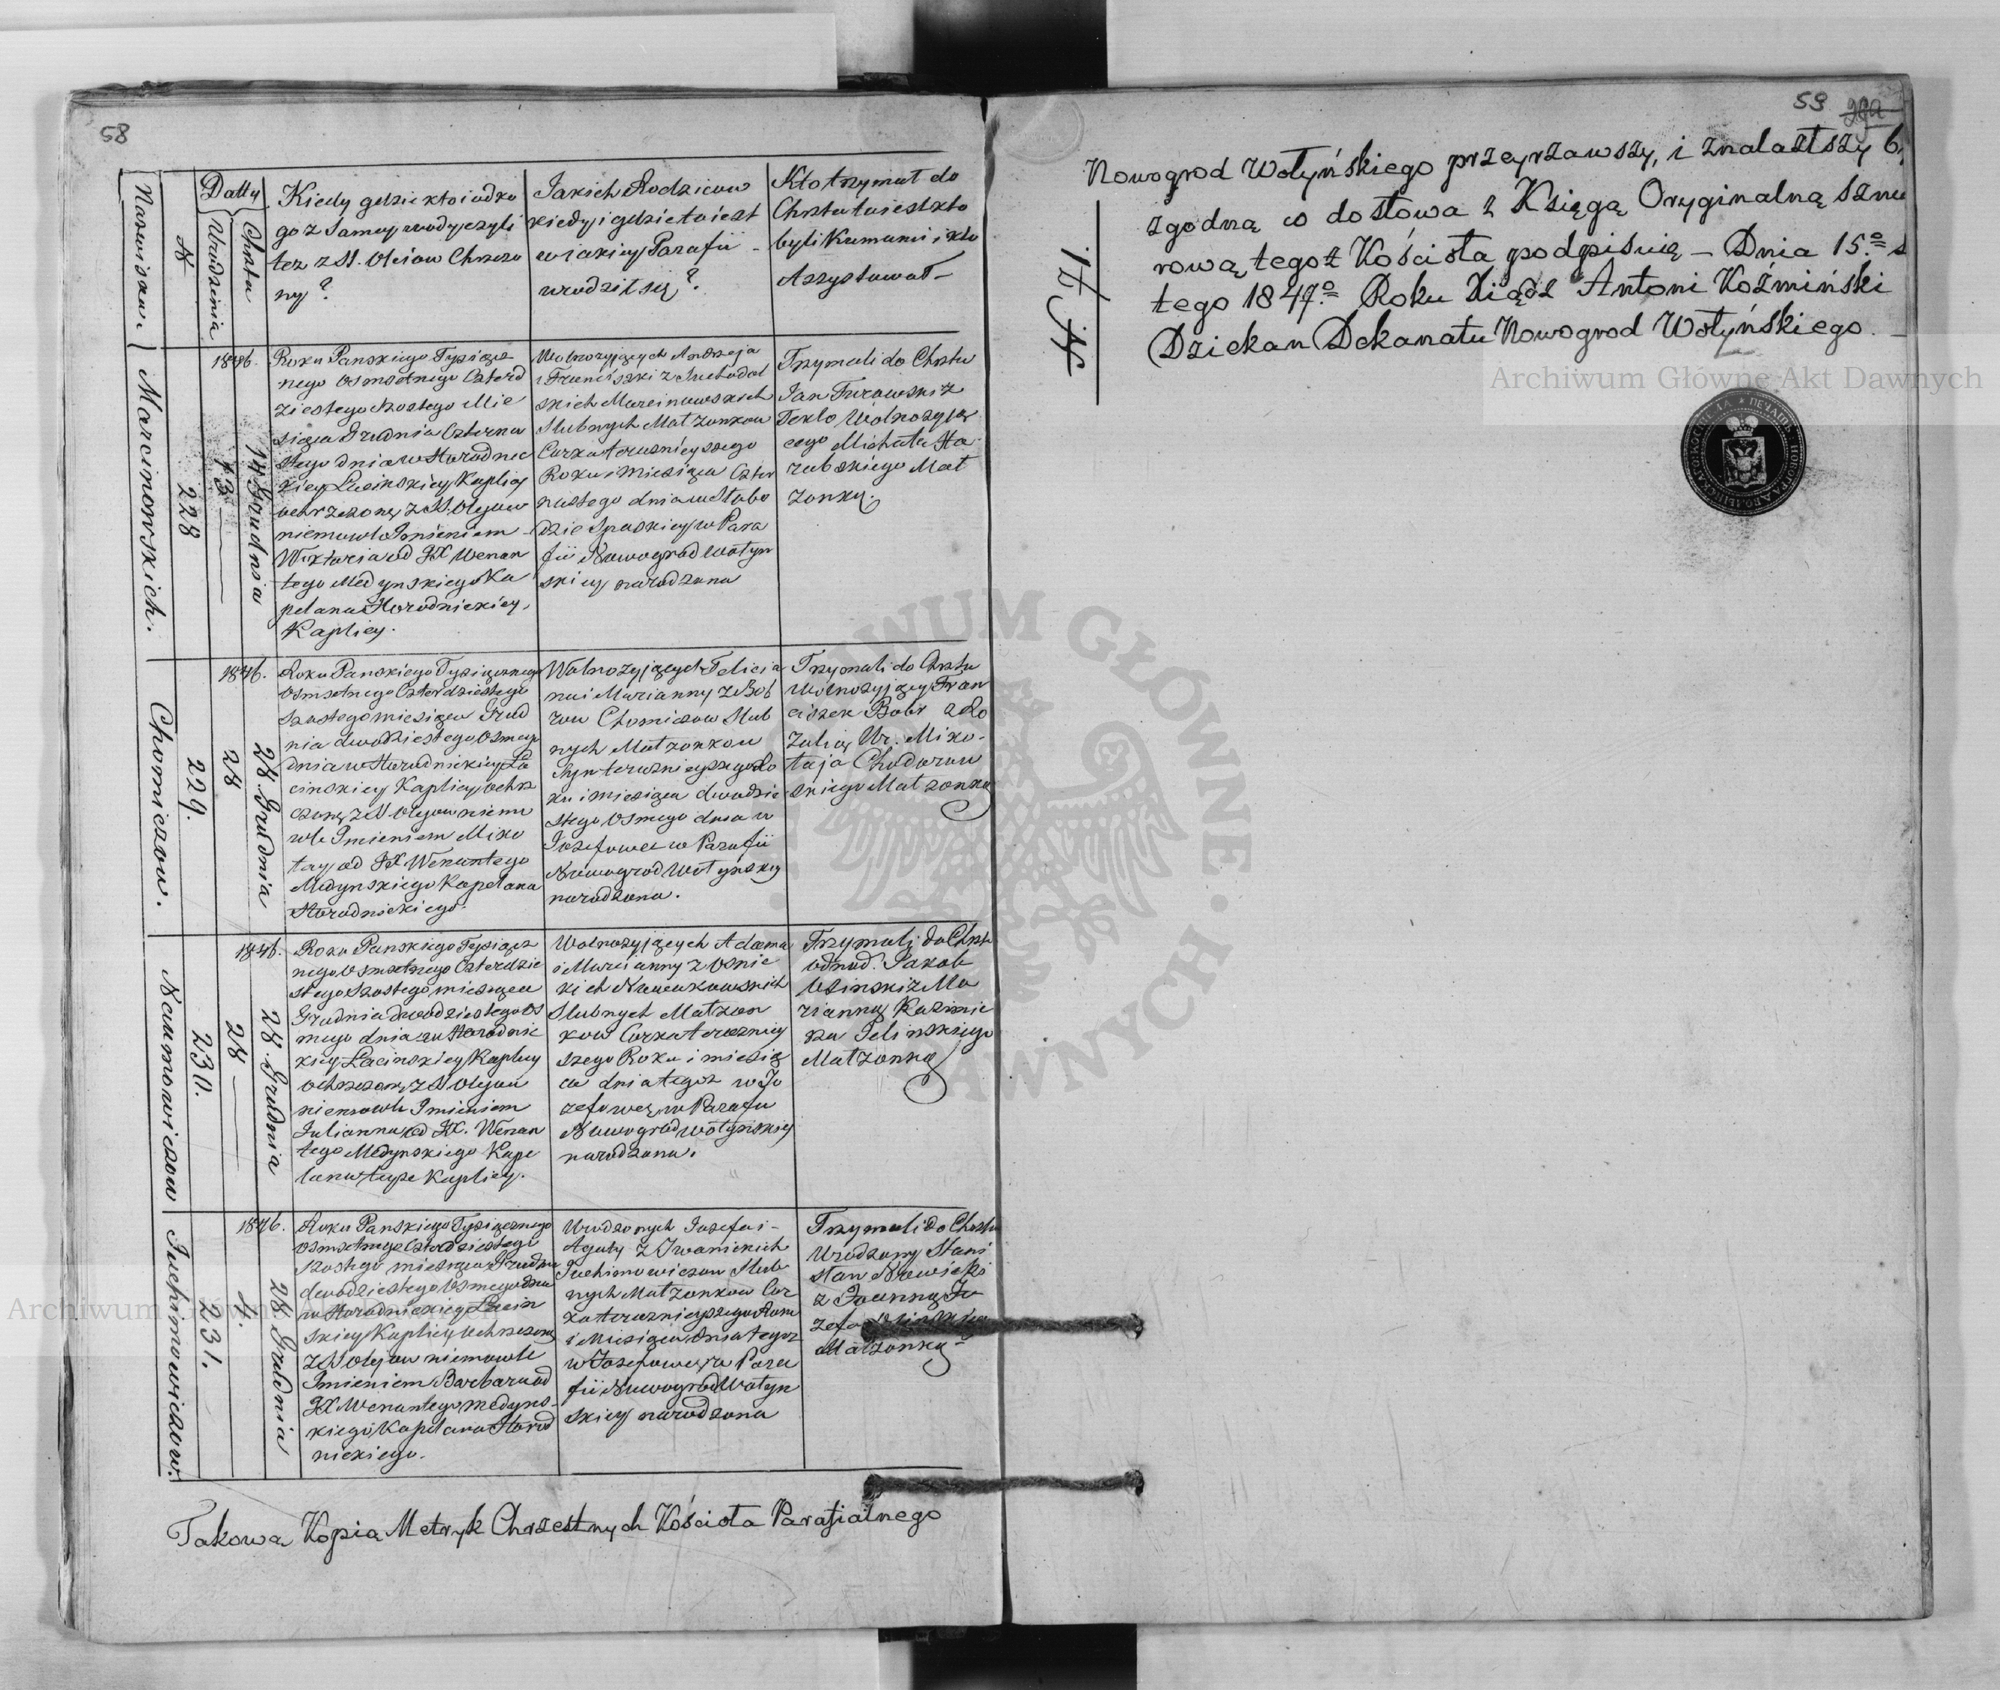 58
Nazwiska.
N
Datty
Urodzenia
Chrztu
Kiedy gdzie kto i od ko
go z Samey wody czyli
też z SS. Oleiow Chrzczo
ny?
Jakich Rodzicow
kiedy i gdzie to iest
w iakiey Parafii
urodził się?
Kto trzymał do
Chrztu to iest kto
byli Kumami i kto
Assystował
Marcinowskich.
228
1846.
13
14 Grudnia
Roku Panskiego Tysiącz
nego Osmsetnego Czterd
ziestego Szostego Mie
siąca Grudnia Czterna
stego dnia w Horodnic
kiey Łacinskiey Kaplicy
ochrzczone z SS. Olejow
niemowle Imieniem
Wiktoria od JX Wenan
tego Medynskiego Ka
pelana Horodnickiey
Kaplicy.
Wolnożyjących Andrzeja
i Franciszki z
skich Marcinowskich
Slubnych Małzonkow
Corka terazniejszego
Roku i Miesiąca Czter
nastego dnia w Słobo
dzie Spaskiey w Para
fii Nowogrod Wołyn
skiey narodzona
Trzymali do Chrztu
Jan Turowski z
Teklą Wolnożyją
cego Michała Ha
rabskiego Mał
zonką.
Chomiczow.
229.
1846.
28
28 Grudnia
Roku Panskiego Tysiącznego
Osmsetnego Czterdziestego
szostego miesiąca Grud
nia dwudziestego Osmego
dnia w Horodnickiey Ła
cinskiey Kaplicy ochrz
czone z SS. Olejow niemo
wle Imieniem Miko
łay od JX Wenantego
Medynskiego Kapelana
Horodnickiego.
Wolnożyjących Felicia
na i Marianny z Bob
row Chomiczow Slub
nych Małzonkow
Syn terazniejszego Ro
ku i miesiąca dwudzie
stego Osmego dnia w
Jozefowce w Parafii
Nowogrod Wołynskiey
narodzona.
Trzymali do Chrztu
Wolnożyjący Fran
ciszek Bobr z Ro
zalią Ur. Miko
łaja Chodorow
skiego Małzonką
Naumowiczow
230.
1846.
28
28 Grudnia
Roku Panskiego Tysiącz
nego Osmsetnego Czterdzie
stego Szostego miesiąca
Grudnia dwudziestego Os
mego dnia w Horodnic
kiey Łacinskiey Kaplicy
Ochrzczone z SS Olejow
niemowle Imieniem
Julianna od JX. Wenan
tego Medynskiego Kape
lana tejże Kaplicy.
Wolnożyjących Adama
i Marianny z Osnic
kich
Slubnych Małzon
kow Corka terazniey
szego Roku i miesią
ca dnia tegoz w Jo
zefowce w Parafii
Nowogrod Wołynskiey
narodzona.
Trzymali do Chrztu
Jakob
Osinski z Ma
rianną Kazimie
rza Jelinskiego
Małzonką
Juchimowiczow.
231.
1846.
4.
28 Grudnia
Roku Panskiego Tysiącznego
Osmsetnego Czterdziestego
szostego miesiąca Grudnia
dwudziestego Osmego dnia
w Horodnickiey Łacin
skiey Kaplicy Ochrzczone
z SS Olejow niemowle
Imieniem Barbara od
JX Wenantego Medyns
kiego Kapelana Horod
nickiego.
Urodzonych Jozefa i
Agaty z Iwanickich
Juchimowiczow Slub
nych Małzonkow Cor
ka terazniejszego Roku
i Miesiąca dnia tegoz
w Jozefowce w Para
fii Nowogrod Wołyn
skiey narodzona
Trzymali do Chrztu
Urodzony Stani
sław Nowicki
z Joanną Jo
zefa
Małzonką
Takową Kopią Metryk Chrzestnych Kościoła Parafialnego
59
Nowogrod Wołyńskiego przeyrzawszy, i znalazłszy
zgodną co do słowa z Księgą Oryginalną sznu
rową tegoż Kościoła podpisuię – Dnia 15.º
tego 1847.º Roku Xiądz Antoni Koźmiński
Dziekan Dekanatu Nowogrod Wołyńskiego.
Archiwum Główne Akt Dawnych